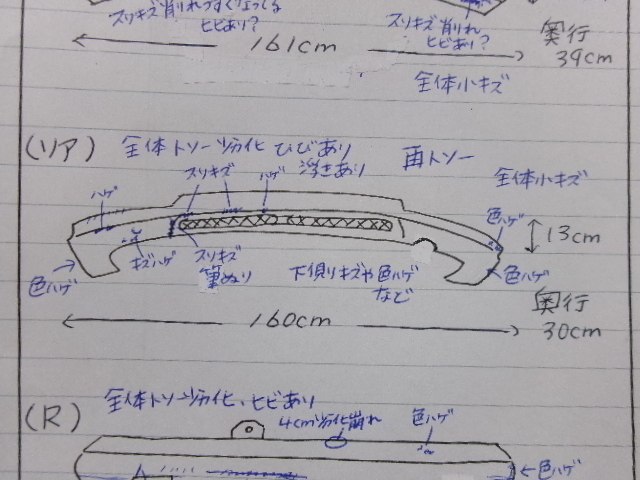 スリキズ削れうすくなってる
ヒビあり?
スリキズ削れ
ヒビあり?
161cm
奥行
39cm
全体小キズ
(リア)
全体トソー劣化 ひびあり
浮きあり
再トソー
全体小キズ
ハゲ
スリキズ
ハゲ
色ハゲ
13cm
キズハゲ
スリキズ
筆ぬり
下側りキズや色ハゲ
など
色ハゲ
色ハゲ
奥行
30cm
160cm
(R)
全体トソー劣化、ヒビあり
4cm劣化崩れ
色ハゲ
色ハゲ